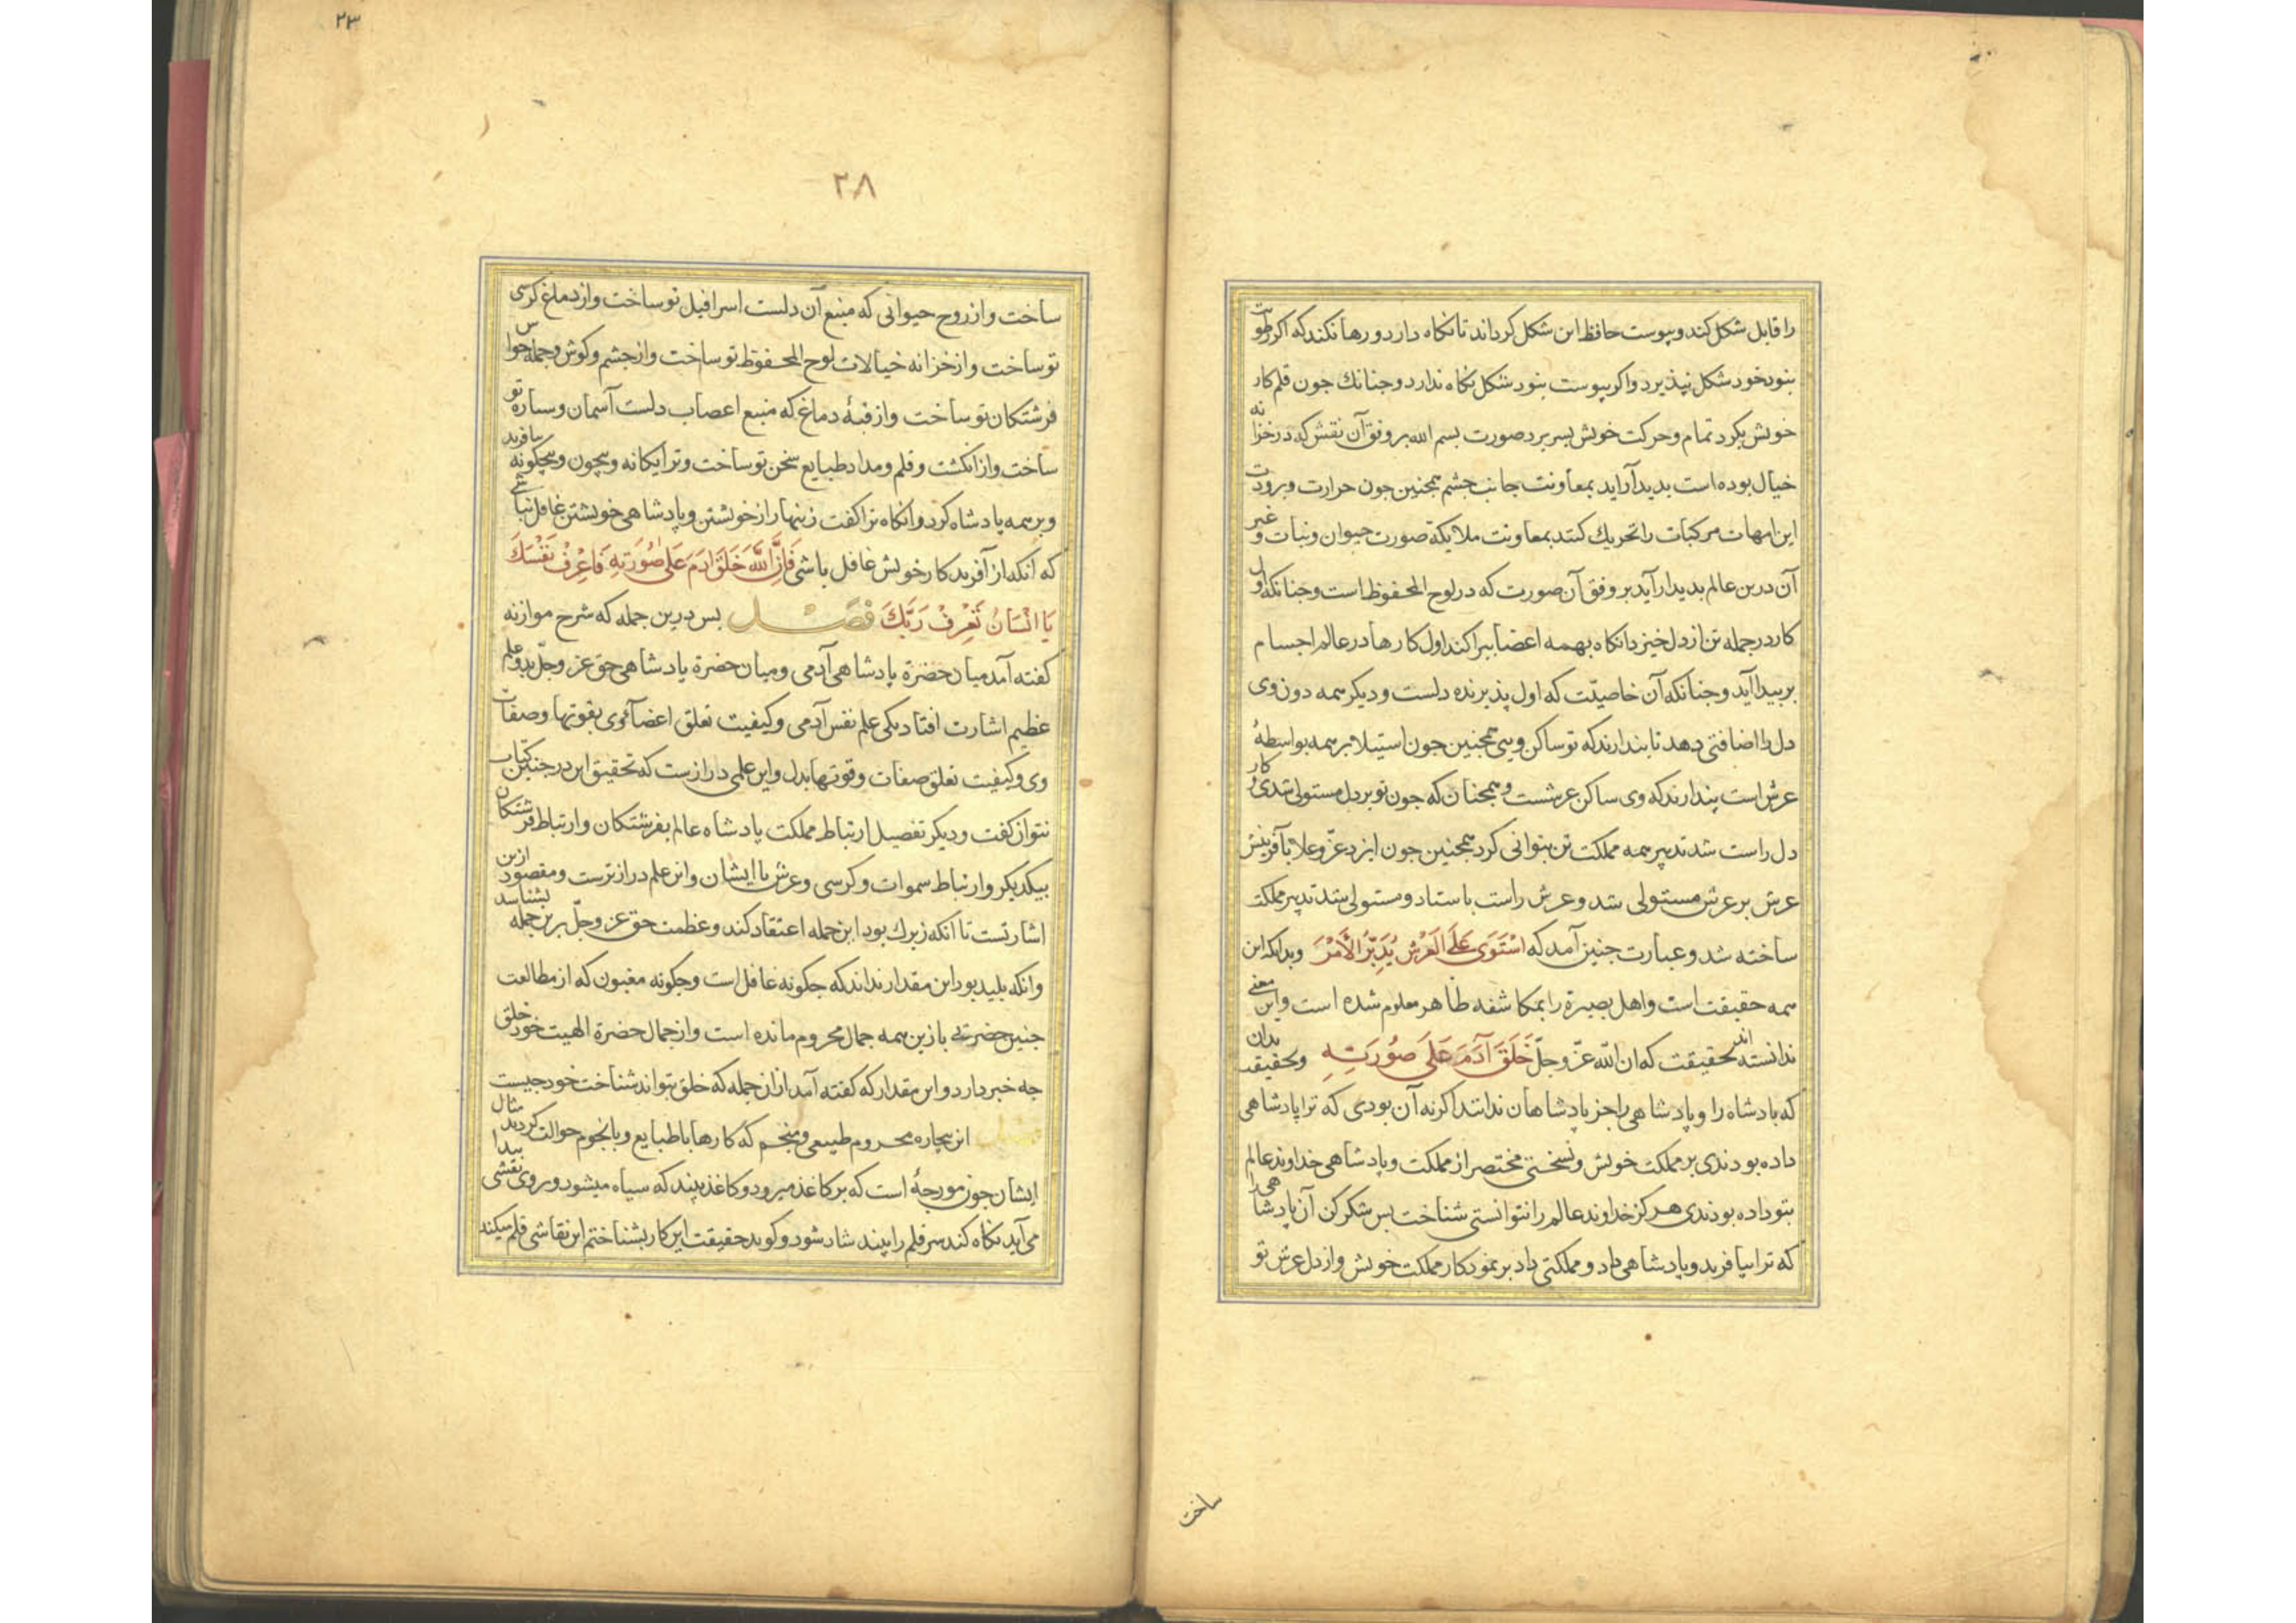 را قابل شكل كند و پوست حافظ این شكل كرداند تا نكاه دارد و رها نكند كه اكر رطوبت
نبود خود شكل نپذیرد و اكر یبوست نبود شكل نكاه ندارد و جنانك جون قلم كار
خویش بكرد تمام و حركت خویش بسر برد صورت بسم الله بر وفق آن نقش كه در خزانه
خیال بوده است بدید آراید بمعاونت جانب جشم همجنین جون حرارت و برودت
این امهات مركبات را تحریك كنند بمعاونت ملایكه صورت حیوان و نبات و غیر
آن درین عالم بدیدار آید بر وفق آن صورت كه در لوح المحفوظ است و جنانكه اول
كار در جمله تن از دل خیزد انكاه بهمه اعضا ببراكند اول كارها در عالم اجسام
بر پیدا آید و جنانكه آن خاصیت كه اول پذیرنده دلست و دیكر همه دون وی
دل را اضافتی دهد تا بندارند كه تو ساكن ویی همجنین جون استیلا بر همه بواسطهٔ
عرش است پندارند كه وی ساكن عرشست و همجنان كه جون تو بر دل مستولی شدی و كار
دل راست شد تدبیر همه مملكت تن بتوانی كرد همجنین جون ایزد عزّ و علا بآفرینش
عرش بر عرش مستولی شد و عرش راست باستاد و مستولی شد تدبیر مملكت
ساخته شد و عبارت جنین آمد كه اسْتَوَى عَلَى الْعَرْشِ يُدَبِّرُ الْأَمْرَ وبدانكه این
همه حقیقت است و اهل بصیرة را بمكاشفه ظاهر معلوم شده است و این معنی
ندانسته اند بحقیقت كه ان الله عزّ و جلّ خَلَقَ آدَمَ عَلَى صُورَتِهِ و بحقیقت بدان
كه بادشاه را و پادشاهی را جز پادشاهان ندانند اكر نه آن بودی كه ترا پادشاهی
داده بودندی بر مملكت خویش و نسختی مختصر از مملكت و پادشاهی خداوند عالم
بتو داده بودندی هركز خداوند عالم را نتوانستی شناخت بس شكر كن آن پادشاهی را
كه ترا بیافرید و پادشاهی داد و مملكتی داد بر نمودكار مملكت خویش و از دل عرش تو
ساخت
٢٣
٢٨
ساخت و از روح حیوانی كه منبع آن دلست اسرافیل تو ساخت و از دماغ كرسی
تو ساخت و از خزانه خیالات لوح المحفوظ تو ساخت و از جشم و كوش و جمله حواس
فرشتكان تو ساخت و از قبهٔ دماغ كه منبع اعصاب دلست آسمان و ستاره تو
ساخت و از انكشت و قلم و مداد طبایع سخن تو ساخت و ترا یكانه و بیجون و بیجكونه بیافرید
و بر همه پادشاه كرد و انكاه ترا كفت زینهار از خویشتن و پادشاهی خویشتن غافل نباشی
كه آنكه از آفریدكار خویش غافل باشی فَإِنَّ اللَّهَ خَلَقَ آدَمَ عَلَى صُورَتِهِ فَاعْرِفْ نَفْسَكَ
يَا انْسَانُ تَعْرِفْ رَبَّكَ فَصْل بس درین جمله كه شرح موازنه
كفته آمد میان حضرة پادشاهی آدمی و میان حضرة پادشاهی حق عز و جلّ بدو علم
عظیم اشارت افتاد یكی علم نفس آدمی و كیفیت تعلق اعضا وی بقوتها و صفات
وی و كیفیت تعلق صفات و قوتها بدل و این علمی درازست كه تحقیق این در جنین كتاب
نتوان كفت و دیكر تفصیل ارتباط مملكت پادشاه عالم بفرشتكان و ارتباط فرشتكان
بیكدیكر و ارتباط سموات و كرسی و عرش با ایشان و این علم درازترست و مقصود ازین
اشارتست تا آنكه زیرك بود این جمله اعتقاد كند و عظمت حق عز و جلّ برین جمله بشناسد
و انكه بلید بود این مقدار نداند كه جكونه غافل است و جكونه مغبون كه از مطالعت
جنین حضرتی بازین همه جمال محروم مانده است و از جمال حضرة الهیت خود خلق
جه خبر دارد و این مقدار كه كفته آمد از ان جمله كه خلق بتواند شناخت خود جیست
فصل این بیجاره محروم طبیعی و منجم كه كارها با طبایع و با نجوم حوالت كردند مثال
ایشان جون مورجهٔ است كه بر كاغذ میرود و كاغذ بیند كه سیاه میشود و بر وی نقشی پیدا
می آید نكاه كند سر قلم را بیند شاد شود و كوید حقیقت این كار بشناختم این نقاشی قلم میكند